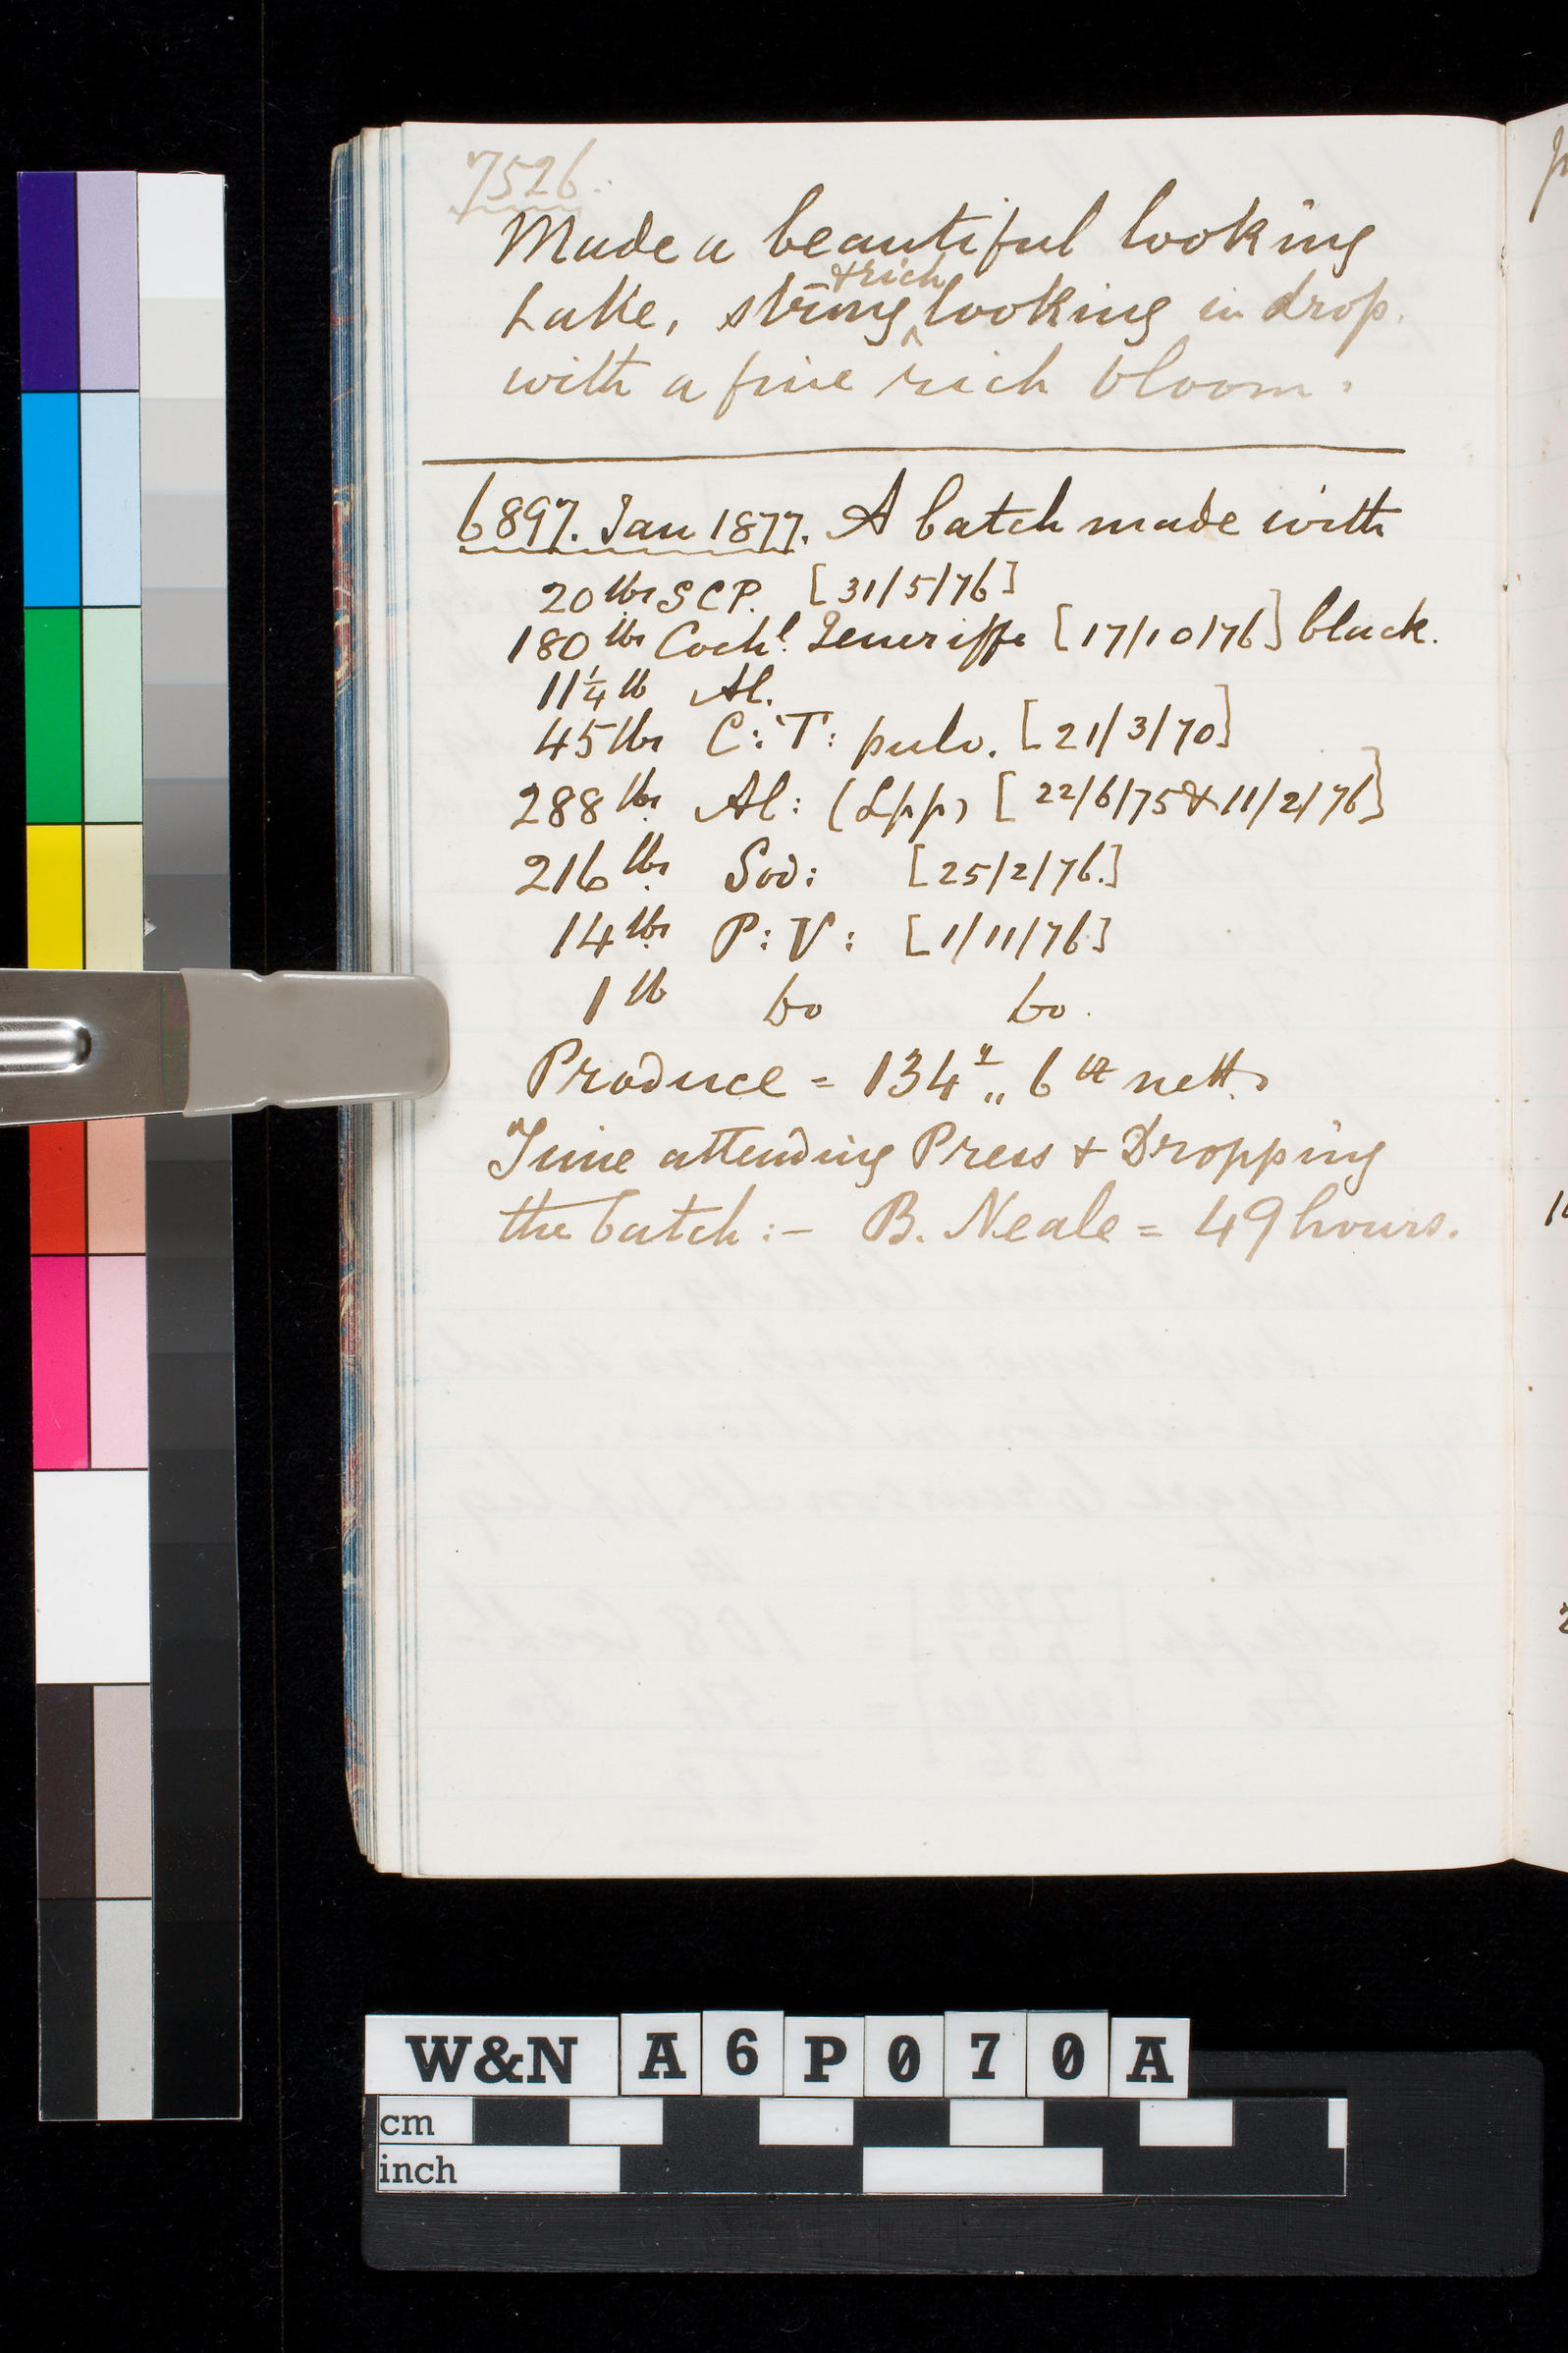 7526.
Made a beautiful looking
Lake, strong & rich looking in drop.
with a fine rich bloom.
6897. Jan 1877. A batch made with
20 lbs SCP. [31/5/76]
180 lbs Cochl. Teneriffe [17/10/76] black.
11 1/4 lb Al.
45 lbs C: T: pulv. [21/3/70]
288 lbs Al: (Lpp) [22/6/75 & 11/2/76]
216 lbs Sod: [25/2/76.]
14 lbs P: V: [1/11/76]
1 lb Do Do.
Produce = 134 „ 6 nett.
Time attending Press & Dropping
the batch :- B. Neale = 49 hours.
W&N A 6 P 0 7 0 A
cm
inch